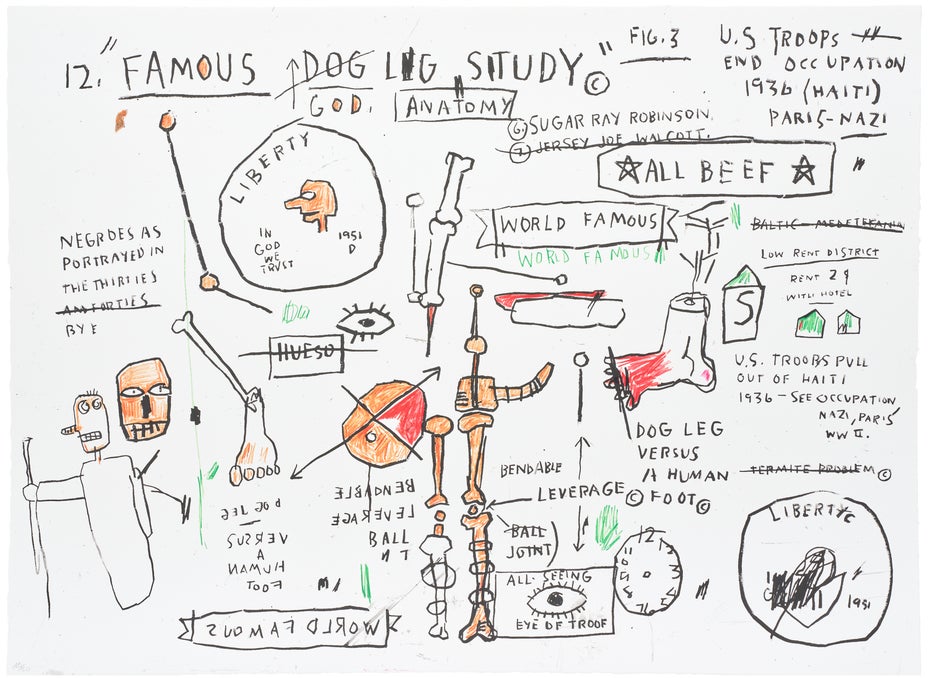 12. "FAMOUS DOG LEG STUDY" ©
GOD.
ANATOMY
FIG. 3
U.S TROOPS
END OCCUPATION
1936 (HAITI)
PARIS-NAZI
6. SUGAR RAY ROBINSON.
7. JERSEY JOE WALCOTT.
ALL BEEF
LIBERTY
IN
GOD
WE
TRUST
1951
D
WORLD FAMOUS
WORLD FAMOUS
LOW RENT DISTRICT
RENT 29
WITH HOTEL
S
NEGROES AS
PORTRAYED IN
THE THIRTIES
AM FORTIES
BYE
HUESO
U.S. TROOPS PULL
OUT OF HAITI
1936 - SEE OCCUPATION
NAZI, PARIS
WW II.
TERMITE PROBLEM ©
DOG LEG
VERSUS
A HUMAN
© FOOT ©
BENDABLE
LEVERAGE
BALL
JOINT
DOG LEG
VERSUS
A
HUMAN
FOOT
BENDABLE
LEVERAGE
BALL
ALL-SEEING
EYE OF TROOF
12
LIBERTY
1951
WORLD FAMOUS